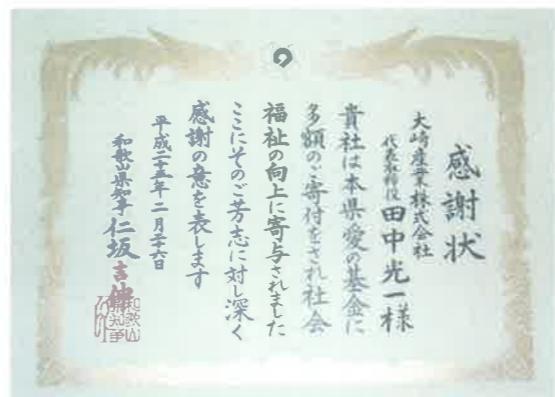 感謝状
大崎産業株式会社
代表取締役 田中光一様
貴社は本県愛の基金に
多額のご寄付をされ社会
福祉の向上に寄与されました
ここにそのご芳志に対し深く
感謝の意を表します
平成二十五年二月二十六日
和歌山県知事 仁坂吉伸